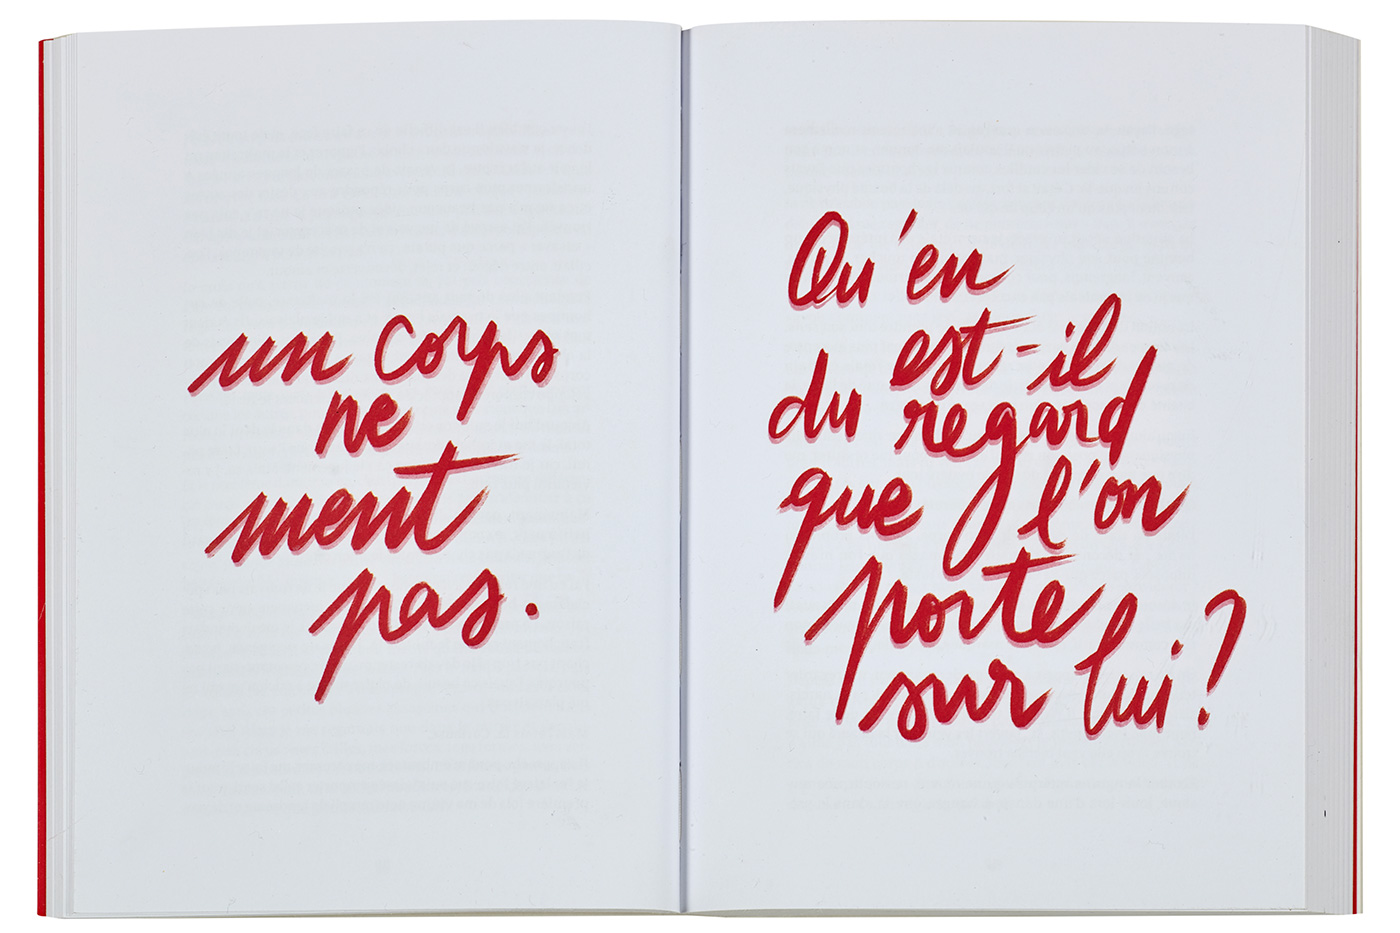 un corps
ne
ment
pas.
Qu'en
est-il
du regard
que l'on
porte
sur lui?